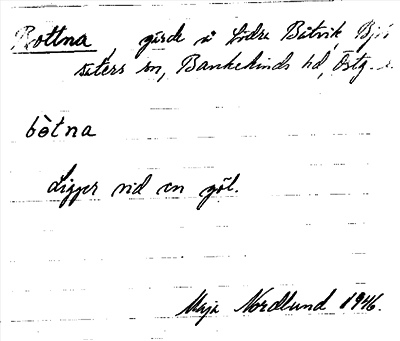 Bottna, gärde i Södra Båtvik, Bjö
säters sn, Bankekinds hd, Östg.
bòtna
Ligger vid en göl.
Maja Nordlund 1946.